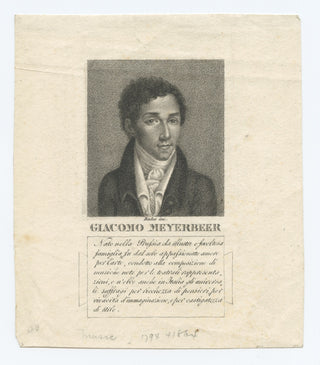 GIACOMO MEYERBEER
Nato nella Prussia da illustre e facoltosa
famiglia, fu dal solo appassionato amore
per l'arte, condotto alla composizione di
musiche note pei teatrali rappresenta
zioni, e n'ebbe anche in Italia gli universa
li suffragi per ricchezza di pensieri, per
vivacità d'immaginazione, e per castigatezza
di stile.
music 1794